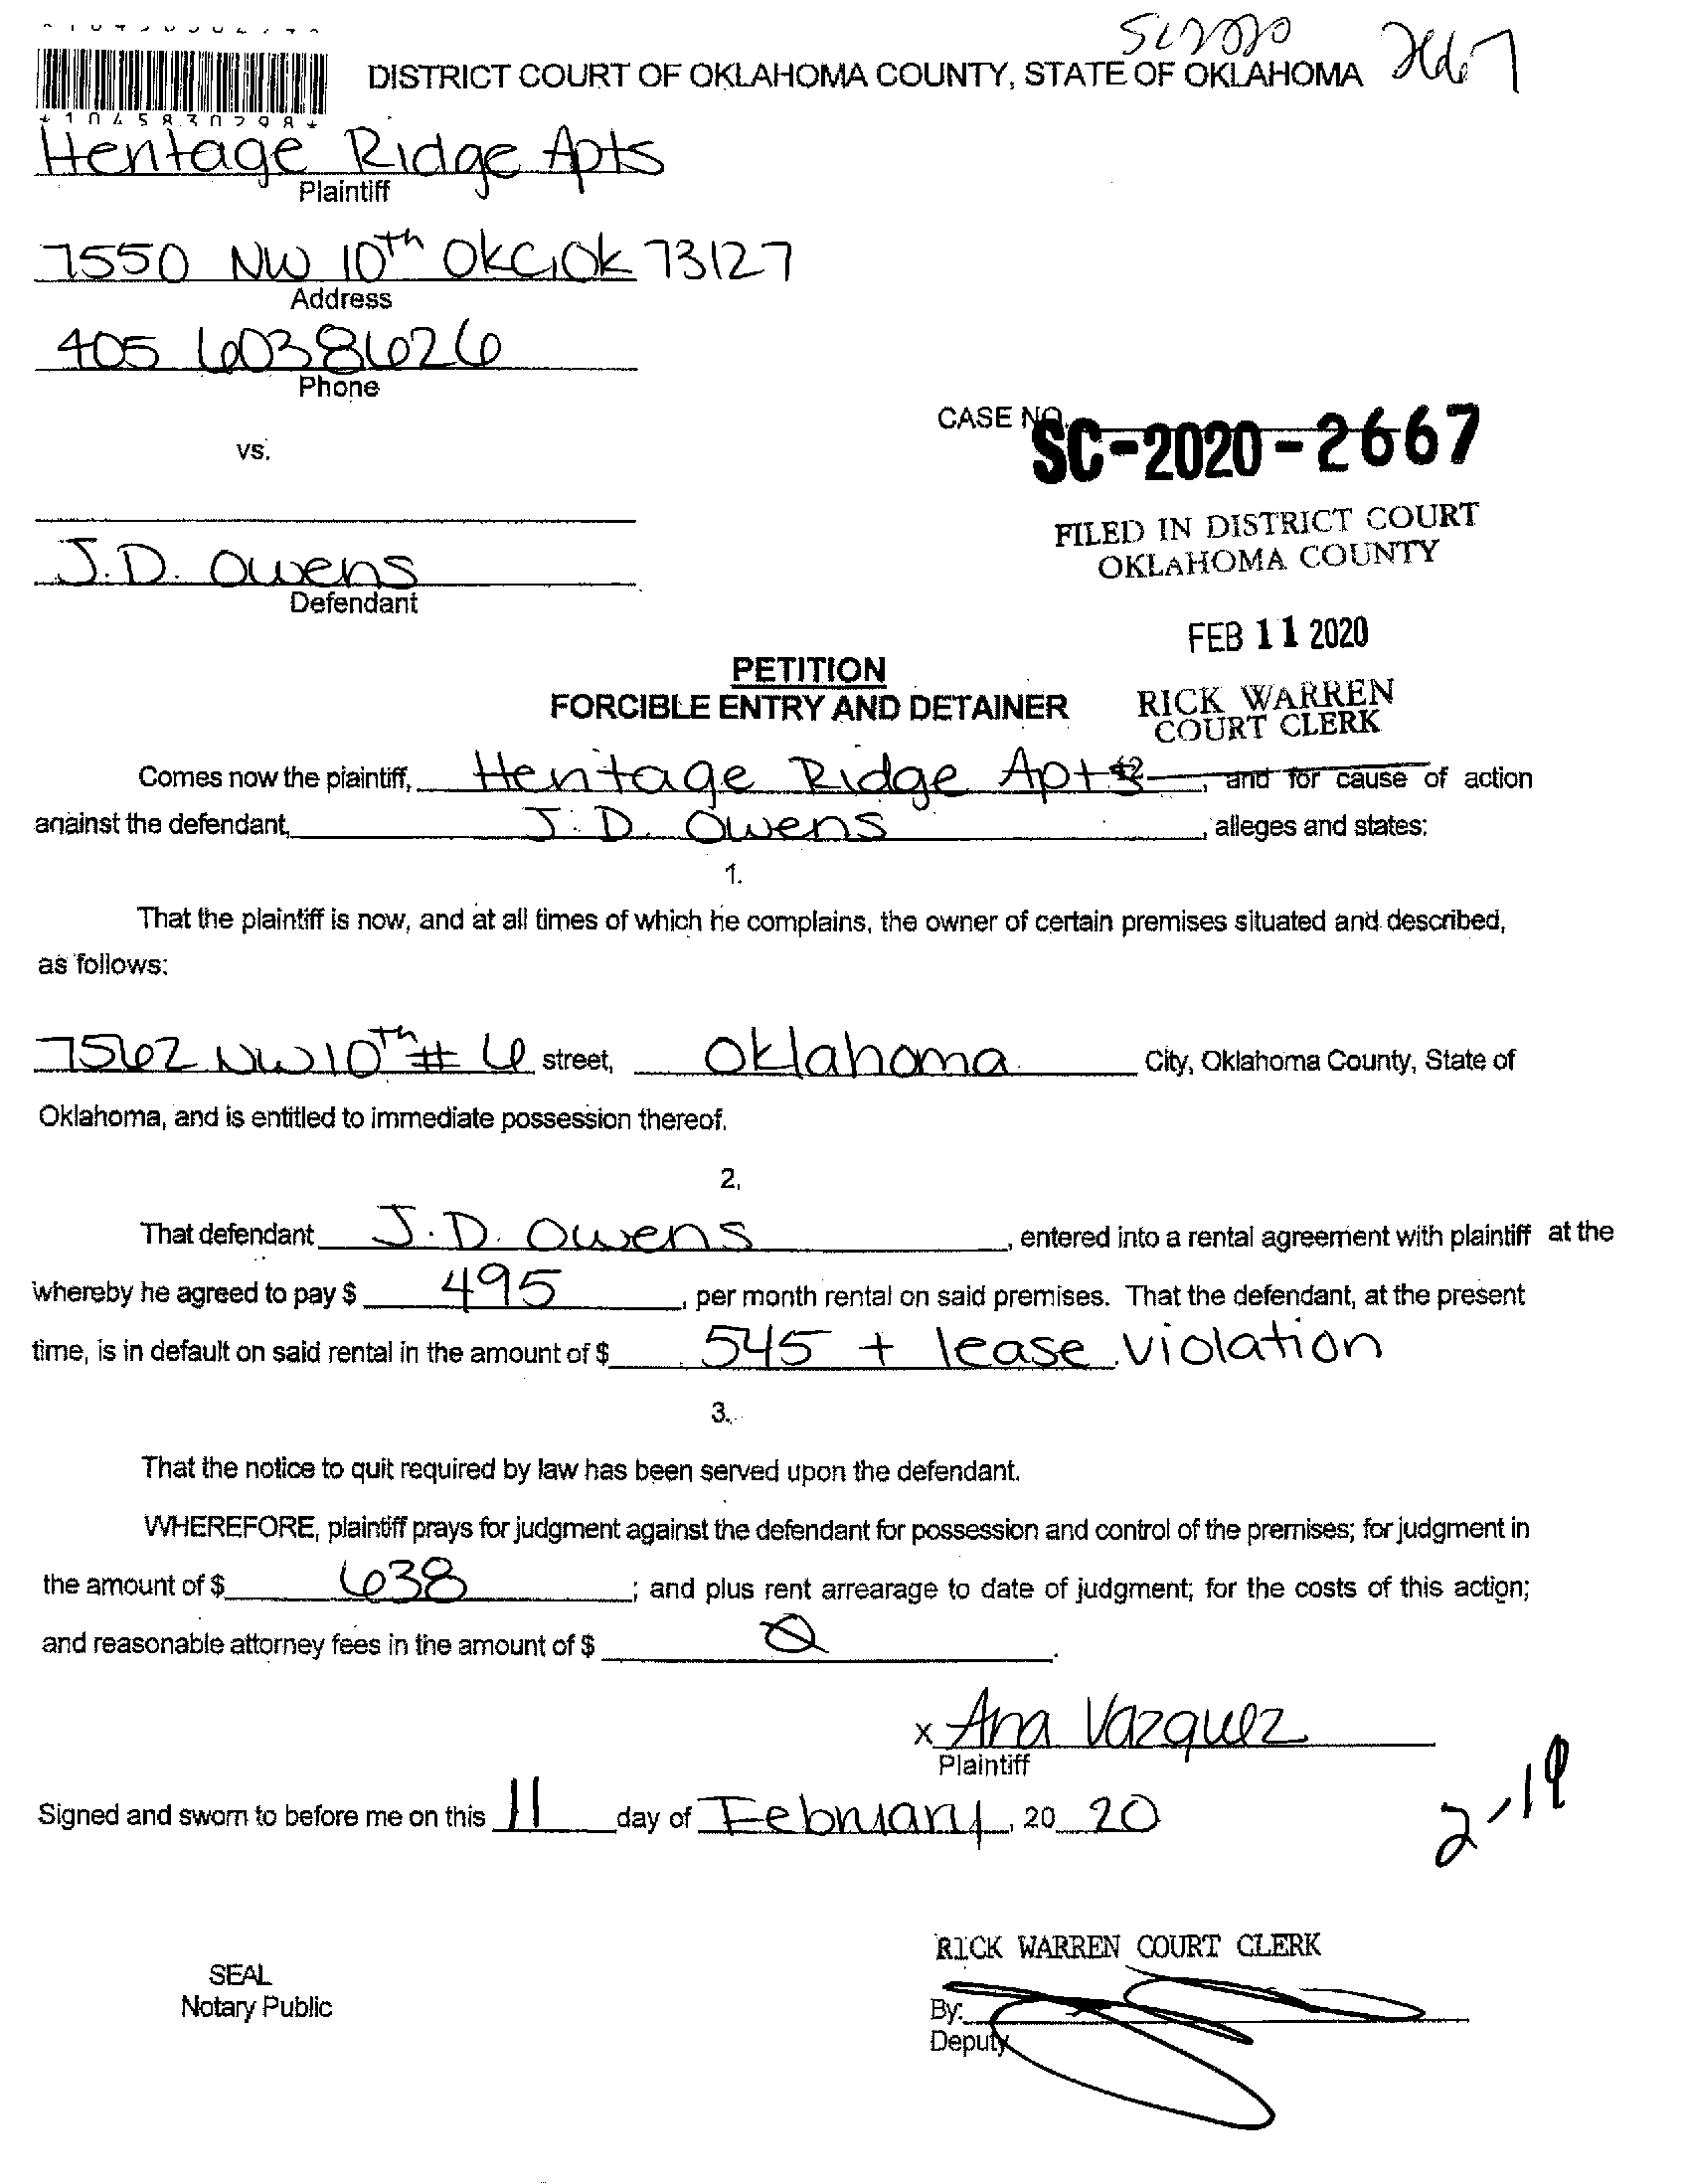 DISTRICT COURT OF OKLAHOMA COUNTY, STATE OF OKLAHOMA
*1045830298*
Heritage Ridge Apts
Plaintiff
7550 NW 10th OKC, OK 73127
Address
405 6038626
Phone
CASE NO.
SC-2020-2667
vs.
FILED IN DISTRICT COURT
OKLAHOMA COUNTY
J.D. Owens
Defendant
FEB 11 2020
PETITION
FORCIBLE ENTRY AND DETAINER
RICK WARREN
COURT CLERK
Comes now the plaintiff, Heritage Ridge Apts 42, and for cause of action
against the defendant, J.D. Owens, alleges and states:
1.
That the plaintiff is now, and at all times of which he complains, the owner of certain premises situated and described,
as follows:
7562 NW 10th # 6 street, Oklahoma City, Oklahoma County, State of
Oklahoma, and is entitled to immediate possession thereof.
2.
That defendant J.D. Owens, entered into a rental agreement with plaintiff at the
whereby he agreed to pay $ 495, per month rental on said premises. That the defendant, at the present
time, is in default on said rental in the amount of $ 545 + lease violation
3.
That the notice to quit required by law has been served upon the defendant.
WHEREFORE, plaintiff prays for judgment against the defendant for possession and control of the premises; for judgment in
the amount of $ 638; and plus rent arrearage to date of judgment; for the costs of this action;
and reasonable attorney fees in the amount of $ 0.
x Ana Vazquez
Plaintiff
Signed and sworn to before me on this 11 day of February, 20 20
2-19
RICK WARREN COURT CLERK
SEAL
Notary Public
By:
Deputy